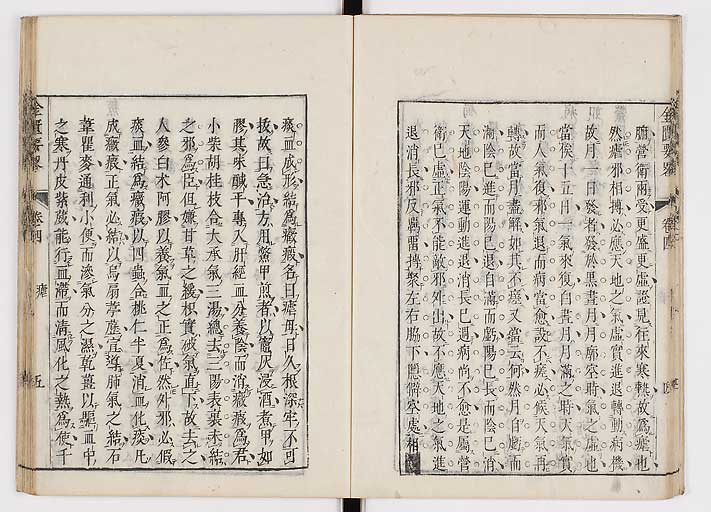 膽營衛兩受更盛更虛證見往來寒熱故爲瘧也
然瘧邪相搏必應天地之氣虛實進退轉動病機
故月一日發者發於黑晝月月廓空時氣之虛也
當俟十五日一氣來復白晝月月滿之時天氣實
而人氣復邪氣退而病當愈設不瘥必候天氣再
轉故當月盡解如其不瘥又當云何然月自虧而
滿陰已進而陽已退自滿而虧陽已長而陰已消
天地陰陽運動進退消長已過病尚不愈是屬營
衛已虛正氣不能敵邪外出故不應天地之氣進
退消長邪反羈留搏聚左右脇下䐃僻空處相
痰血成形結爲癥瘕名曰瘧母日久根深牢不可
拔故曰急治方用鱉甲煎者以竈灰浸酒煮甲如
膠其味鹹平專入肝經血分養陰而消癥瘕爲君
小柴胡桂枝合大承氣三湯總去三陽表裏未結
之邪爲臣但嫌甘草之緩枳實破氣直下故去之
人參白朮阿膠以養氣血之正爲佐然外邪必假
痰血結爲癥瘕以四蟲合桃仁半夏消血化痰凡
成癥瘕正氣必結以烏扇葶藶宣導肺氣之結石
葦瞿麥通利小便而滲氣分之濕乾薑以溫血中
之寒丹皮紫葳能行血滯而清風化之熱爲使千
金匱要畧
卷四
瘧
五